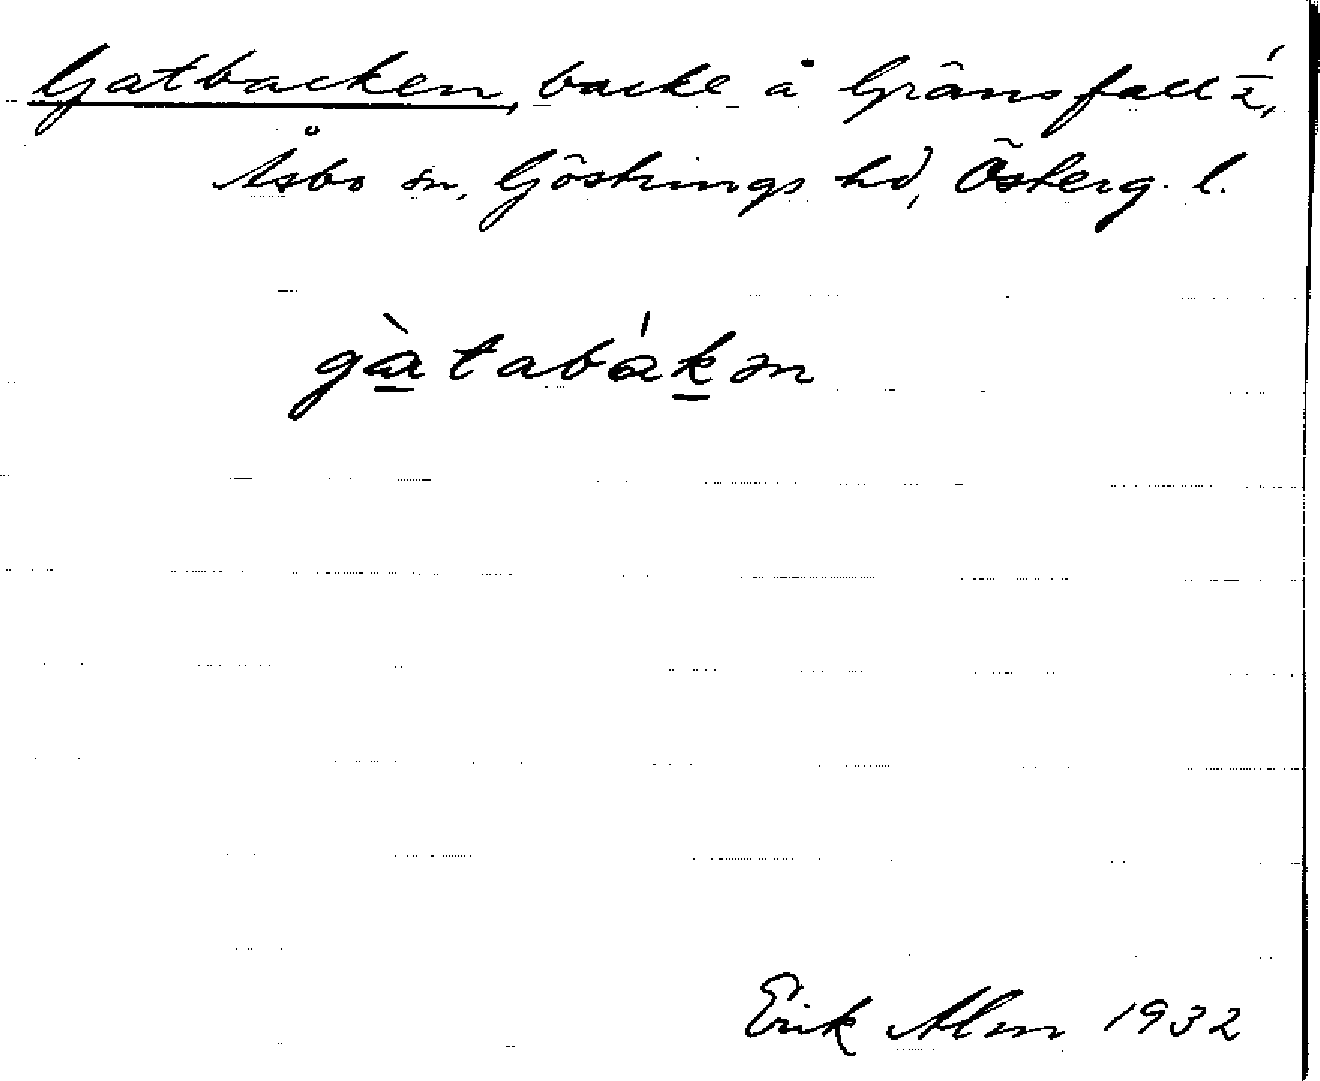 Gatbacken, backe å Gränsfall 1/2,
Åsbo sn, Göstrings hd, Österg. l.
gàtabákən
Erik Alm 1932